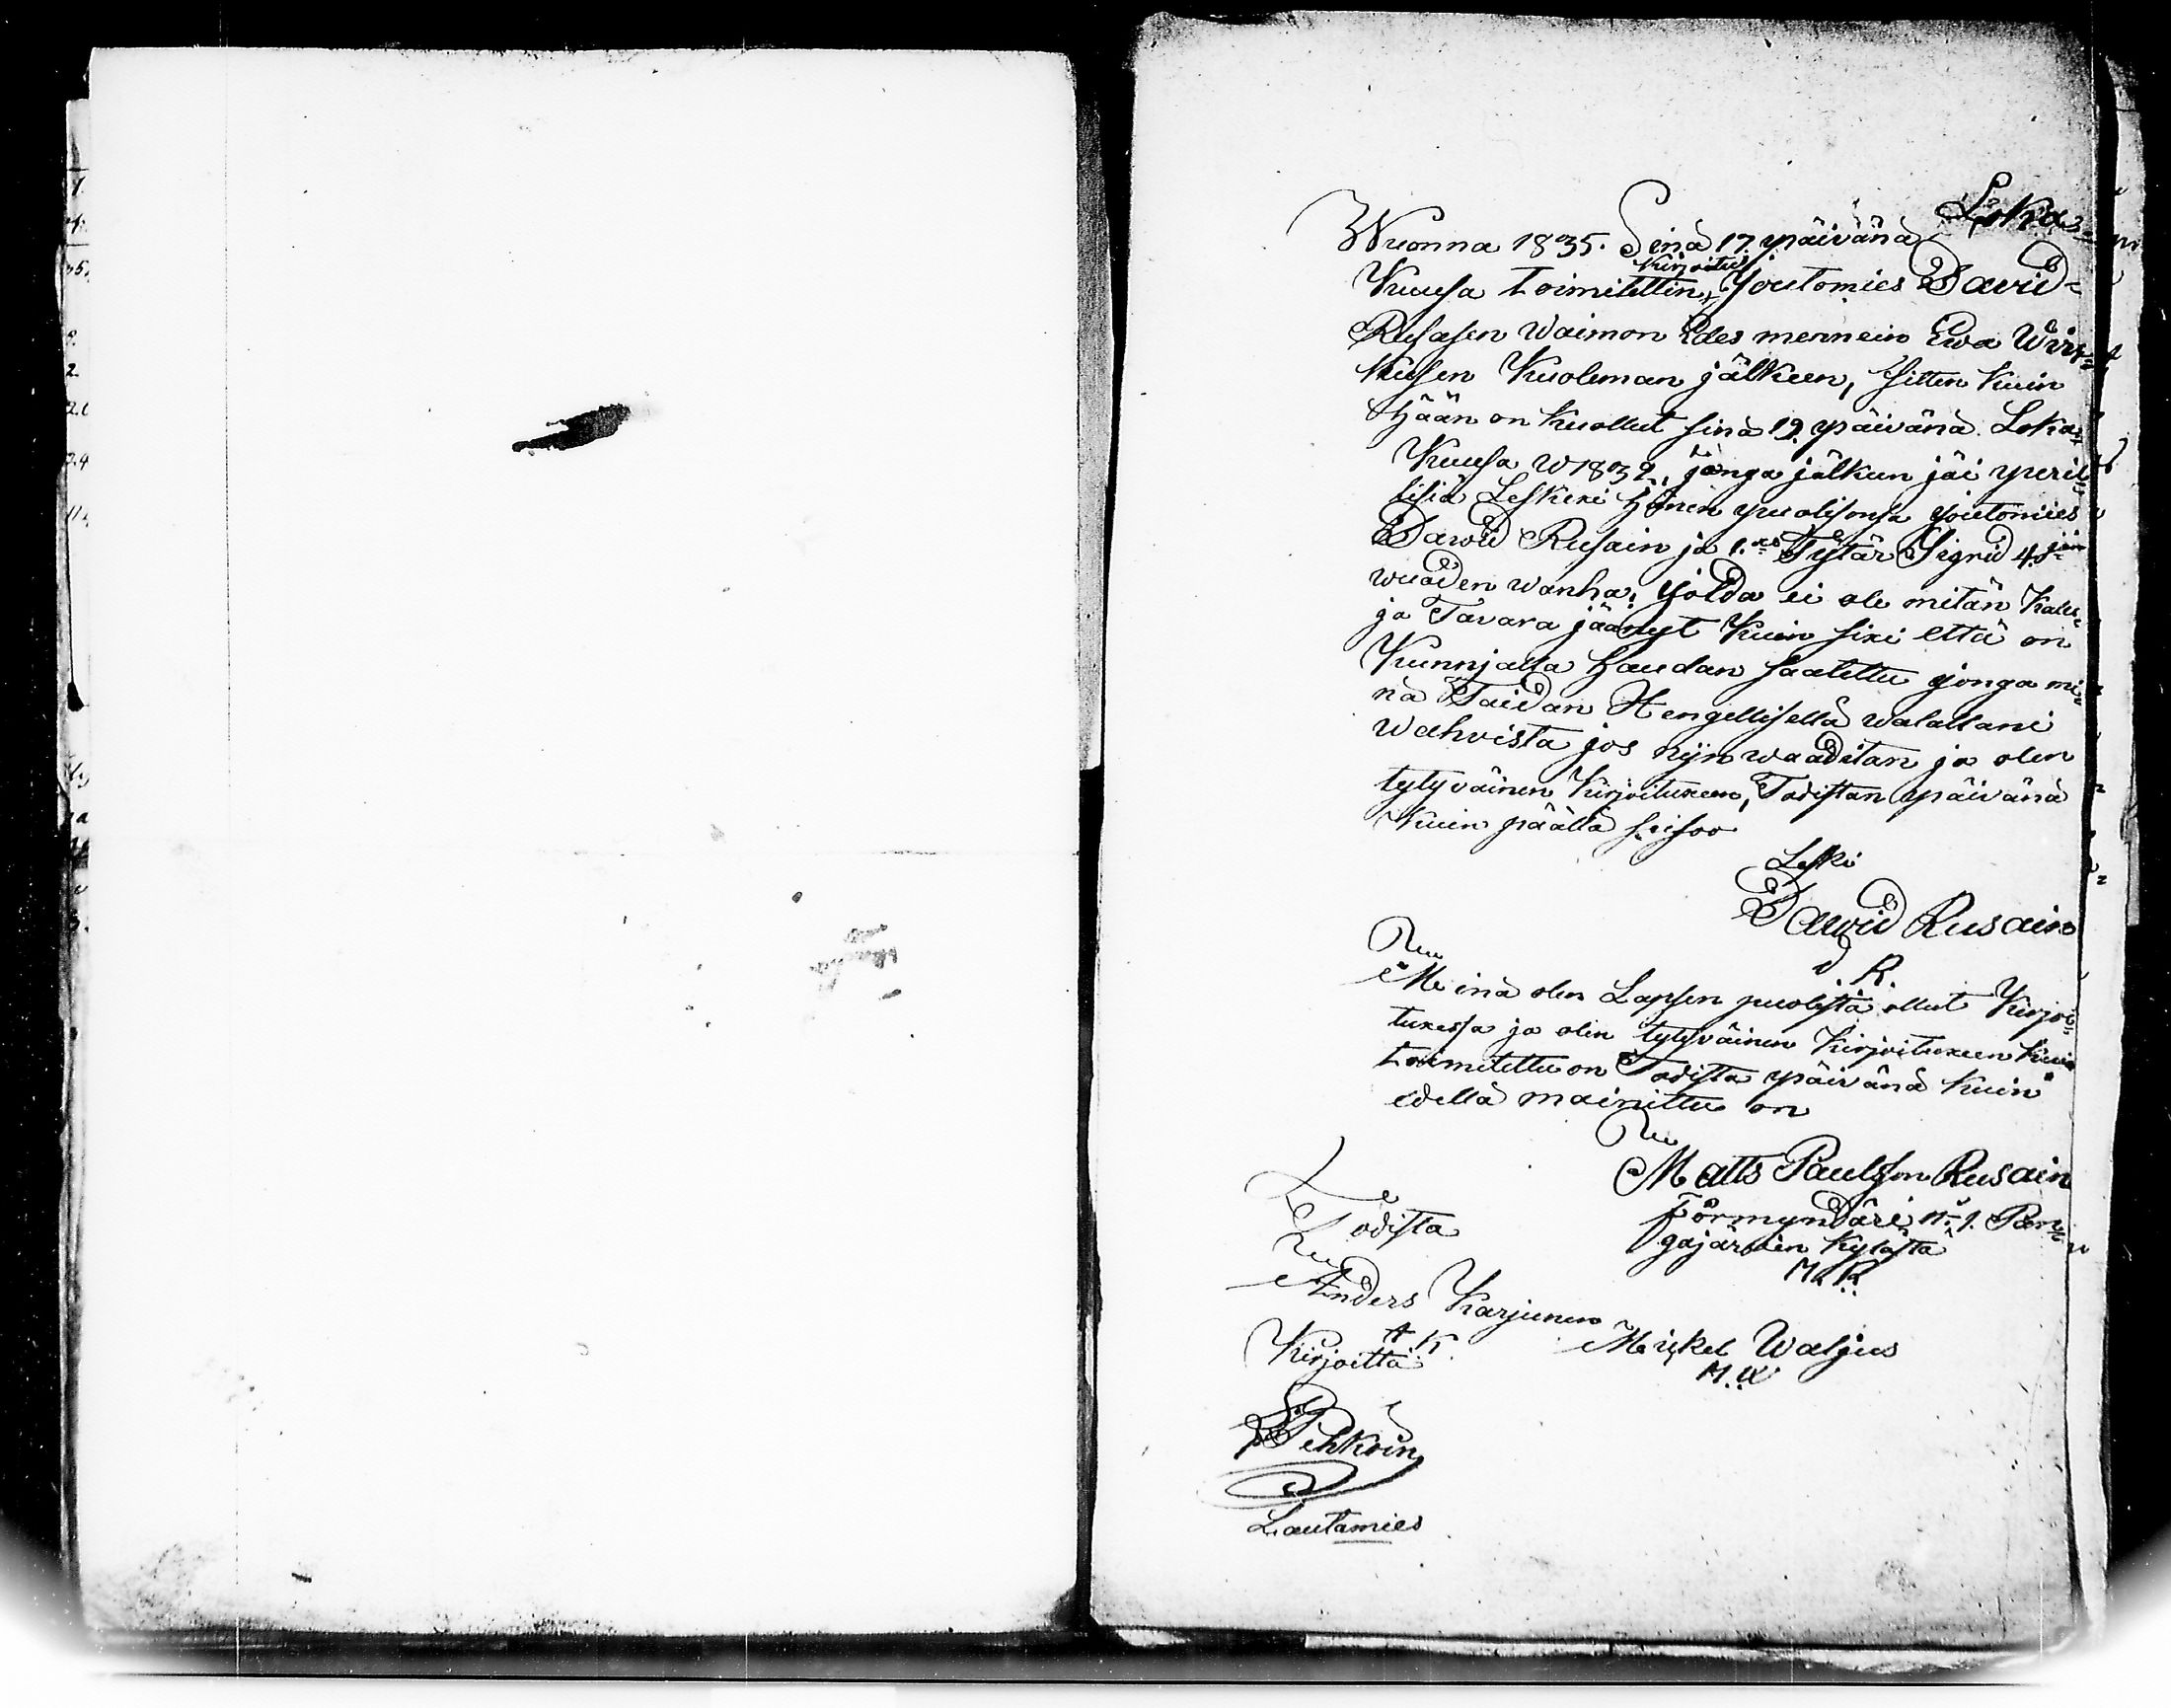 Wuonna 1835. Sinä 17. päivänä Loka=
Kuusa toimitettin, Kirjoitus Joutomies David=
Rusasen Waimon Edes mennein Ewa Wir=
kusen Kuoleman jälkeen, sitten kuin
hään on kuollut sinä 19. päivänä Loka=
Kuusa w 1832, jonga jälkeen jäi peril=
lisiä Leskexi hänen puolisonsa joutomies
Dawid Rusain ja 1. Tytär Sigrid 4.
wuoden wanha; Jolda ei ole mitän Kalu=
ja Tavara jäänyt kuin sixi että on
Kunnjalla haudan saatettu jonga mi=
nä Taidan Hengellisellä walallani
wahvista jos nijn waaditan ja olen
tytyväinen Kirjoitukseen, Todistan päivänä
Kuin päällä seisoo
Leski
Dawid Rusain
D. R.
Minä olen Lapsen puolesta ollut Kirjoi=
tuxessa ja olen tytyväinen Kirjoituxeen kuin
toimitettu on Todista päivänä kuin
edellä mainittu on
Matts Paulsson Rusain
Förmyndäri N: 1. Pan=
gajärven kylästä
M. R.
Todista
Anders Karjunen
A K.
Mickel Waljus
M. W
Kirjoitta
Pehkoin
Lautamies